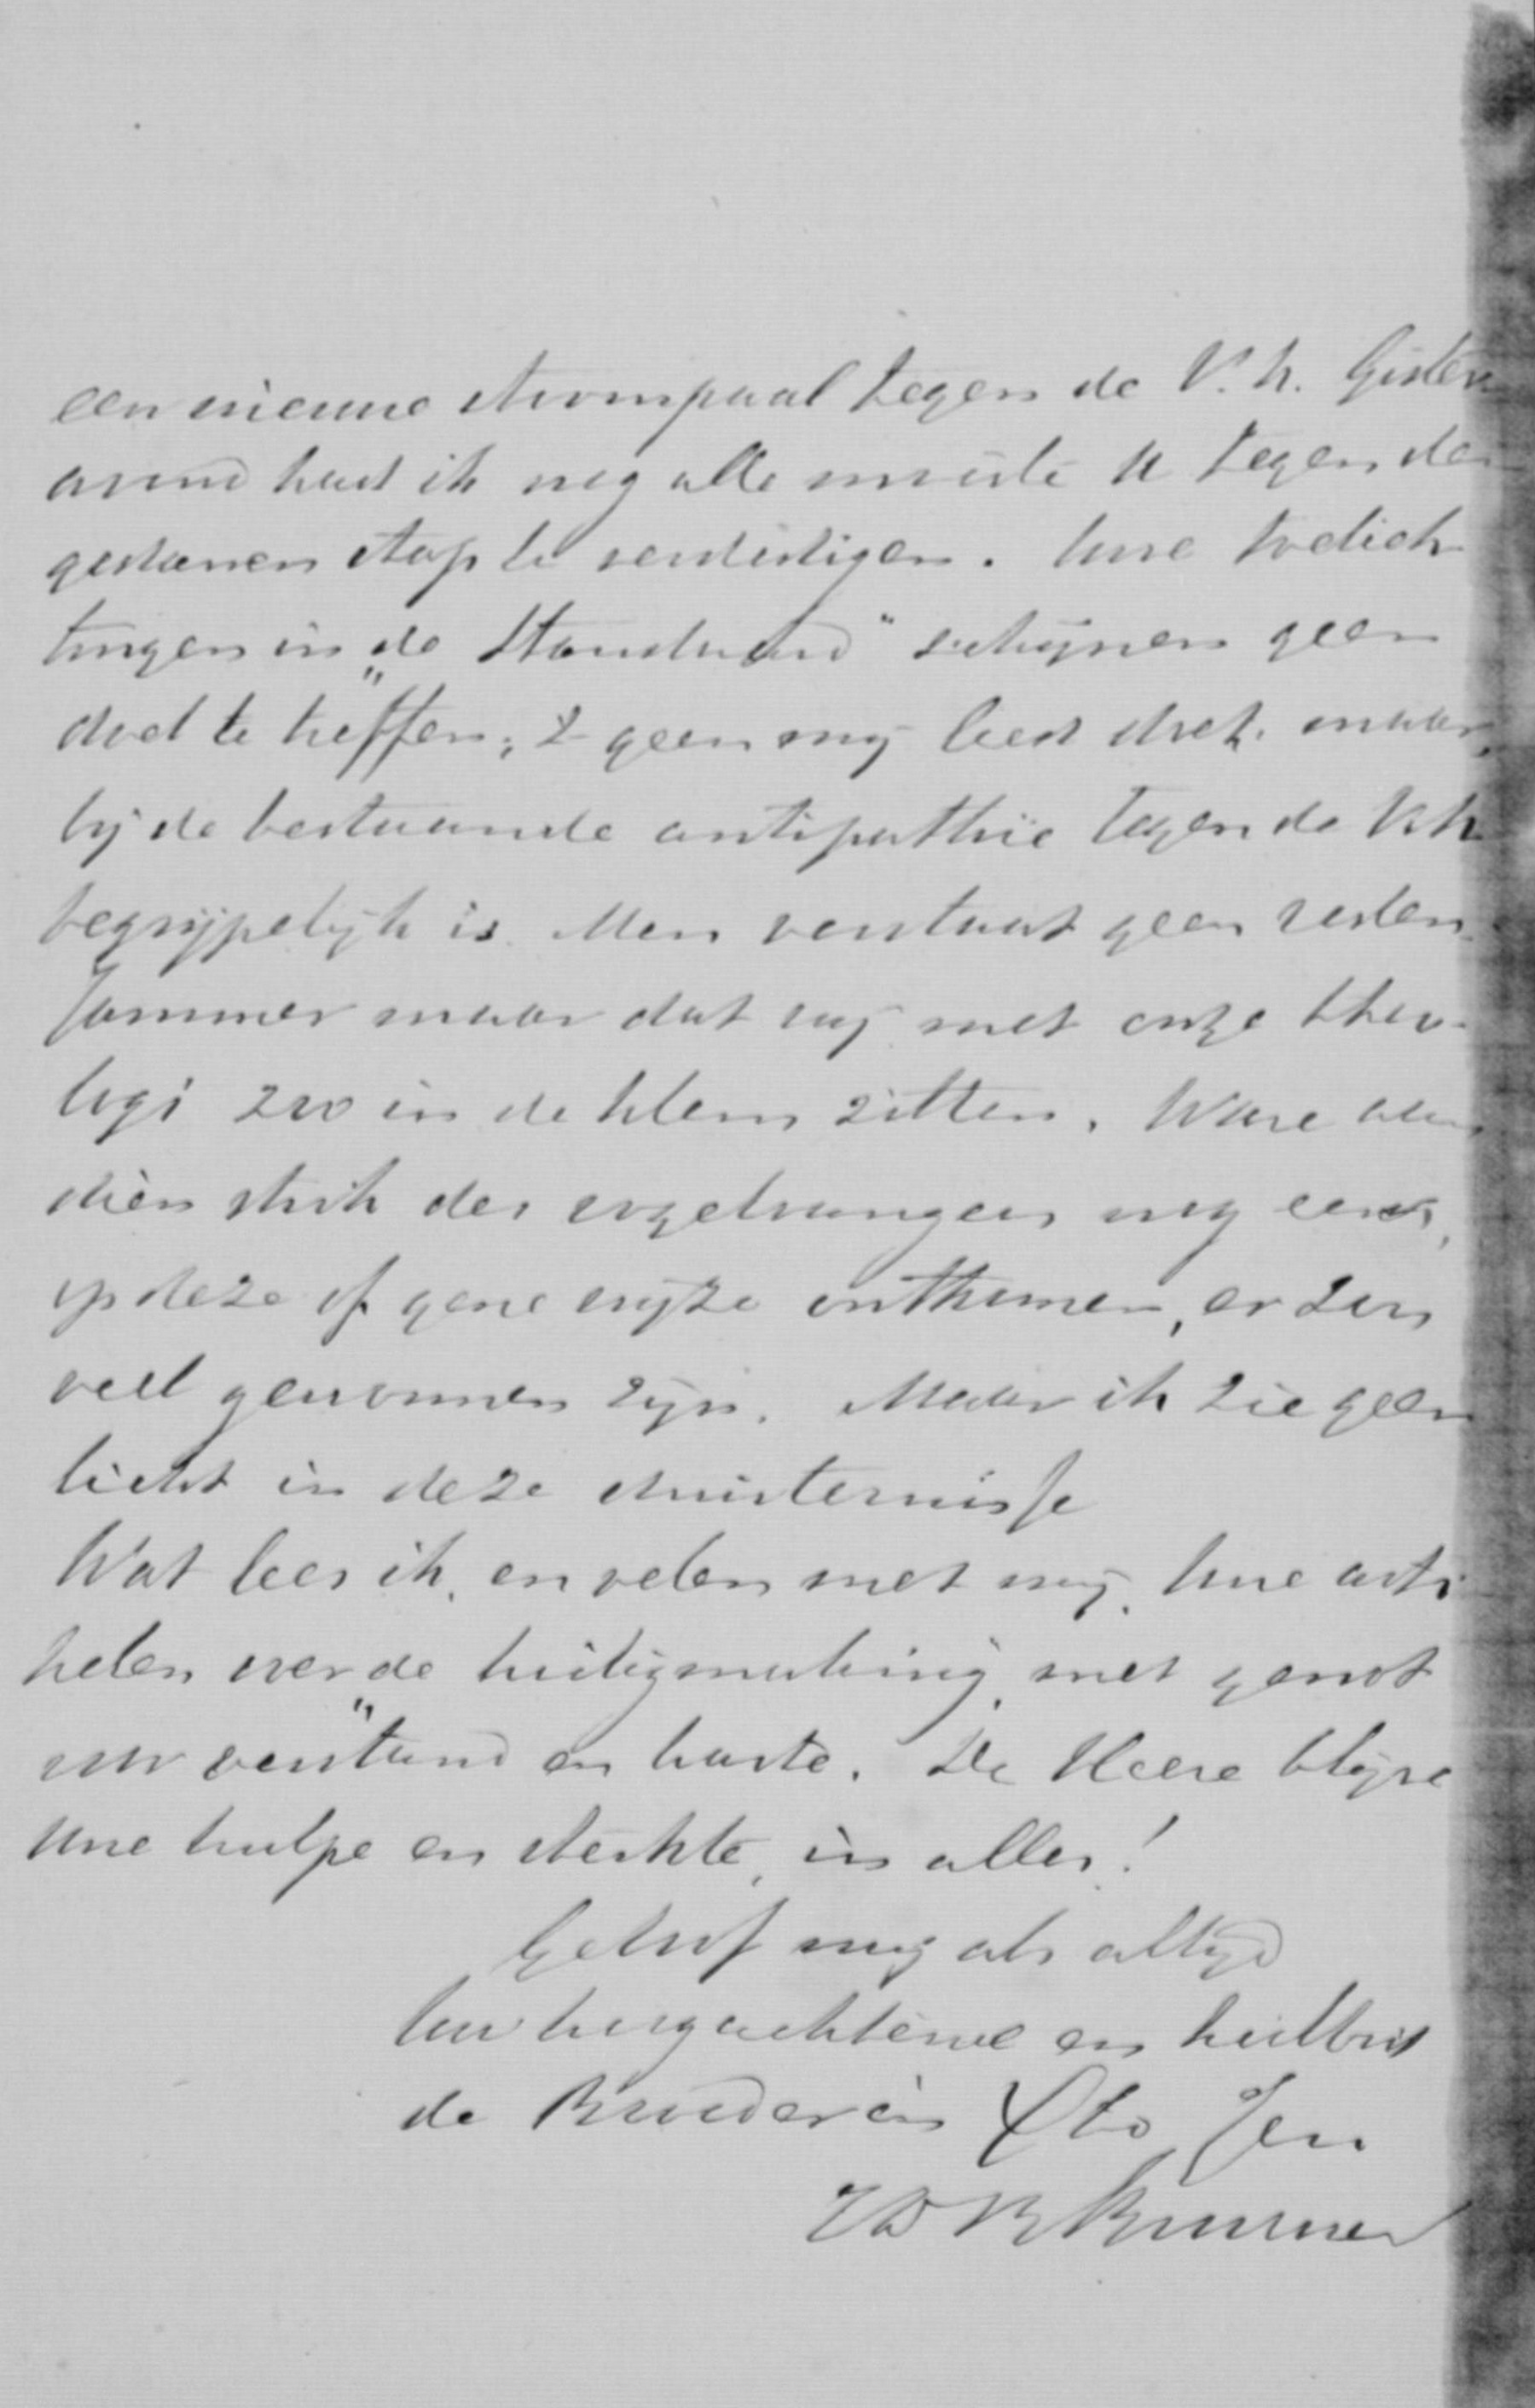 een nieuwe stormpaal tegen de V.U. Gister
avond had ik nog alle moeite U tegen den
gedanen stap te verdedigen. Uwe toelich
tingen in „de Standaard" schijnen geen
doel te treffen; 't geen mij leed doet. maar,
bij de bestaande antipathie tegen de V.U.
begrijpelijk is. Men verstaat geen reden.
Jammer maar dat wij met onze theo-
logi zoo in de klem zitten. Ware aan
dien strik des vogelvangers nog eens,
op deze of gene wijze ontkomen, er zou
veel gewonnen zijn. Maar ik zie geen
licht in deze duisternisse
Wat lees ik, en velen met mij, Uwe arti
kelen over de heiligmaking, met genot
voor verstand en harte. De Heere blijve
Uwe hulpe en sterkte, in alles!
Geloof mij als altijd
Uw hoogachtende en heilbid
de Broeder in Cto Jesu